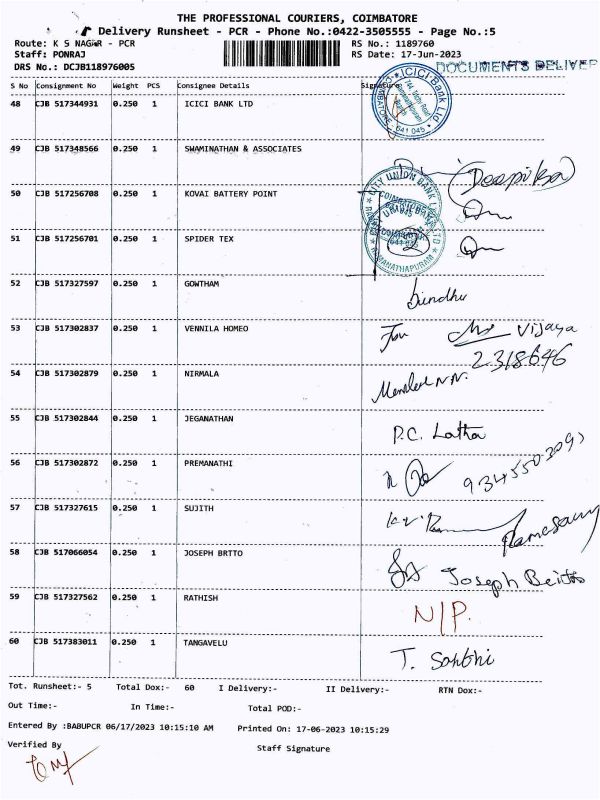 THE PROFESSIONAL COURIERS, COIMBATORE
Delivery Runsheet - PCR - Phone No.:0422-3505555 - Page No.:5
Route: K S NAGAR - PCR RS No.: 1189760
Staff: PONRAJ RS Date: 17-Jun-2023
DRS No.: DCJB118976005 DOCUMENTS DELIVER
S No Consignment No Weight PCS Consignee Details Signature
48 CJB 517344931 0.250 1 ICICI BANK LTD
ICICI Bank Ltd
COIMBATORE
641 045
49 CJB 517348566 0.250 1 SWAMINATHAN & ASSOCIATES
Deepika
50 CJB 517256708 0.250 1 KOVAI BATTERY POINT
CITY UNION BANK LTD
51 CJB 517256701 0.250 1 SPIDER TEX
RAMANATHAPURAM
52 CJB 517327597 0.250 1 GOWTHAM
bindhu
53 CJB 517302837 0.250 1 VENNILA HOMEO
Vijaya
2318646
54 CJB 517302879 0.250 1 NIRMALA
55 CJB 517302844 0.250 1 JEGANATHAN
P.C. Latha
56 CJB 517302872 0.250 1 PREMANATHI
57 CJB 517327615 0.250 1 SUJITH
Ramesamy
58 CJB 517066054 0.250 1 JOSEPH BRTTO
Joseph Britto
59 CJB 517327562 0.250 1 RATHISH
N/P.
60 CJB 517383011 0.250 1 TANGAVELU
Tot. Runsheet:- 5 Total Dox:- 60 I Delivery:- II Delivery:- RTN Dox:-
Out Time:- In Time:- Total POD:-
Entered By :BABUPCR 06/17/2023 10:15:10 AM Printed On: 17-06-2023 10:15:29
Verified By Staff Signature